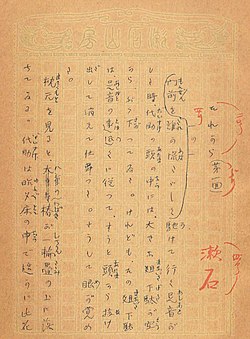 漱石山房
それから
(第一回)
漱石
門前を誰か慌たゞしく馳けて行く足音が
した時、代助の頭の中には、大きな俎下駄が空
から、ぶら下つてゐた。けれども、その俎下駄
は、足音の遠退くに従つて、すうと頭から抜け
出して消えて仕舞つた。さうして眼が覚め
た。
枕元を見ると、八重の椿が一輪畳の上に落ち
てゐる。代助は昨夕床の中で慥かに此花